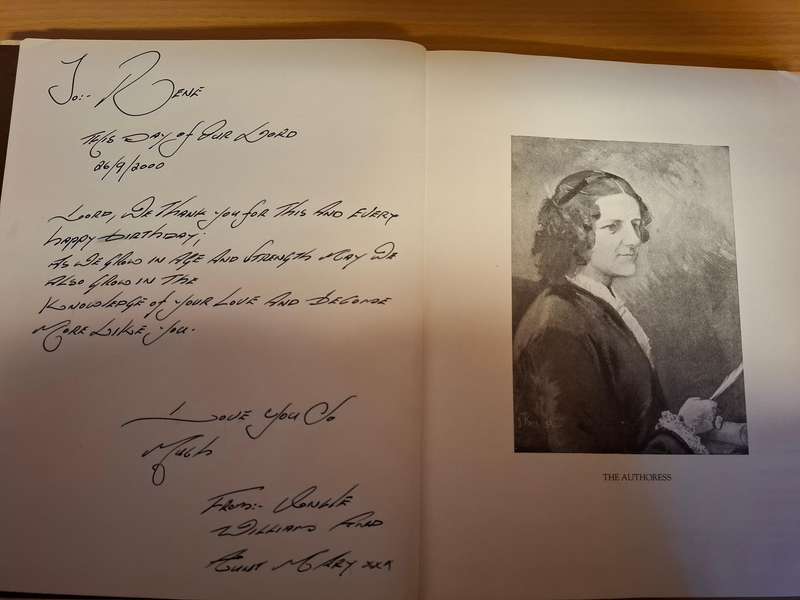 To:- Rene
This Day of Our Lord
26/9/2000
Lord, We Thank you for This And Every
happy Birthday;
As We Grow in Age And Strength May We
Also Grow in The
Knowledge of your Love And Become
More Like, you.
Love you So
Much
From:- Uncle
William And
Aunt Mary xxx
THE AUTHORESS